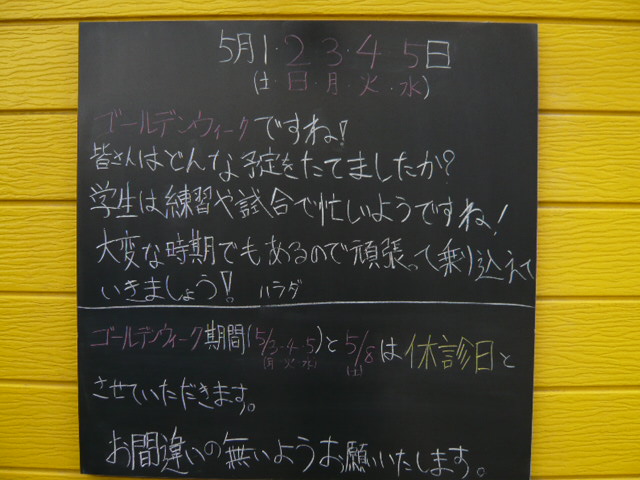 5月1・2・3・4・5日
(土・日・月・火・水)
ゴールデンウィークですね!
皆さんはどんな予定をたてましたか?
学生は練習や試合で忙しいようですね!
大変な時期でもあるので頑張って乗り込えて
いきましょう! ハラダ
ゴールデンウィーク期間(5/3・4・5)と5/8は休診日と
(月・火・水) (土)
させていただきます。
お間違いの無いようお願いいたします。